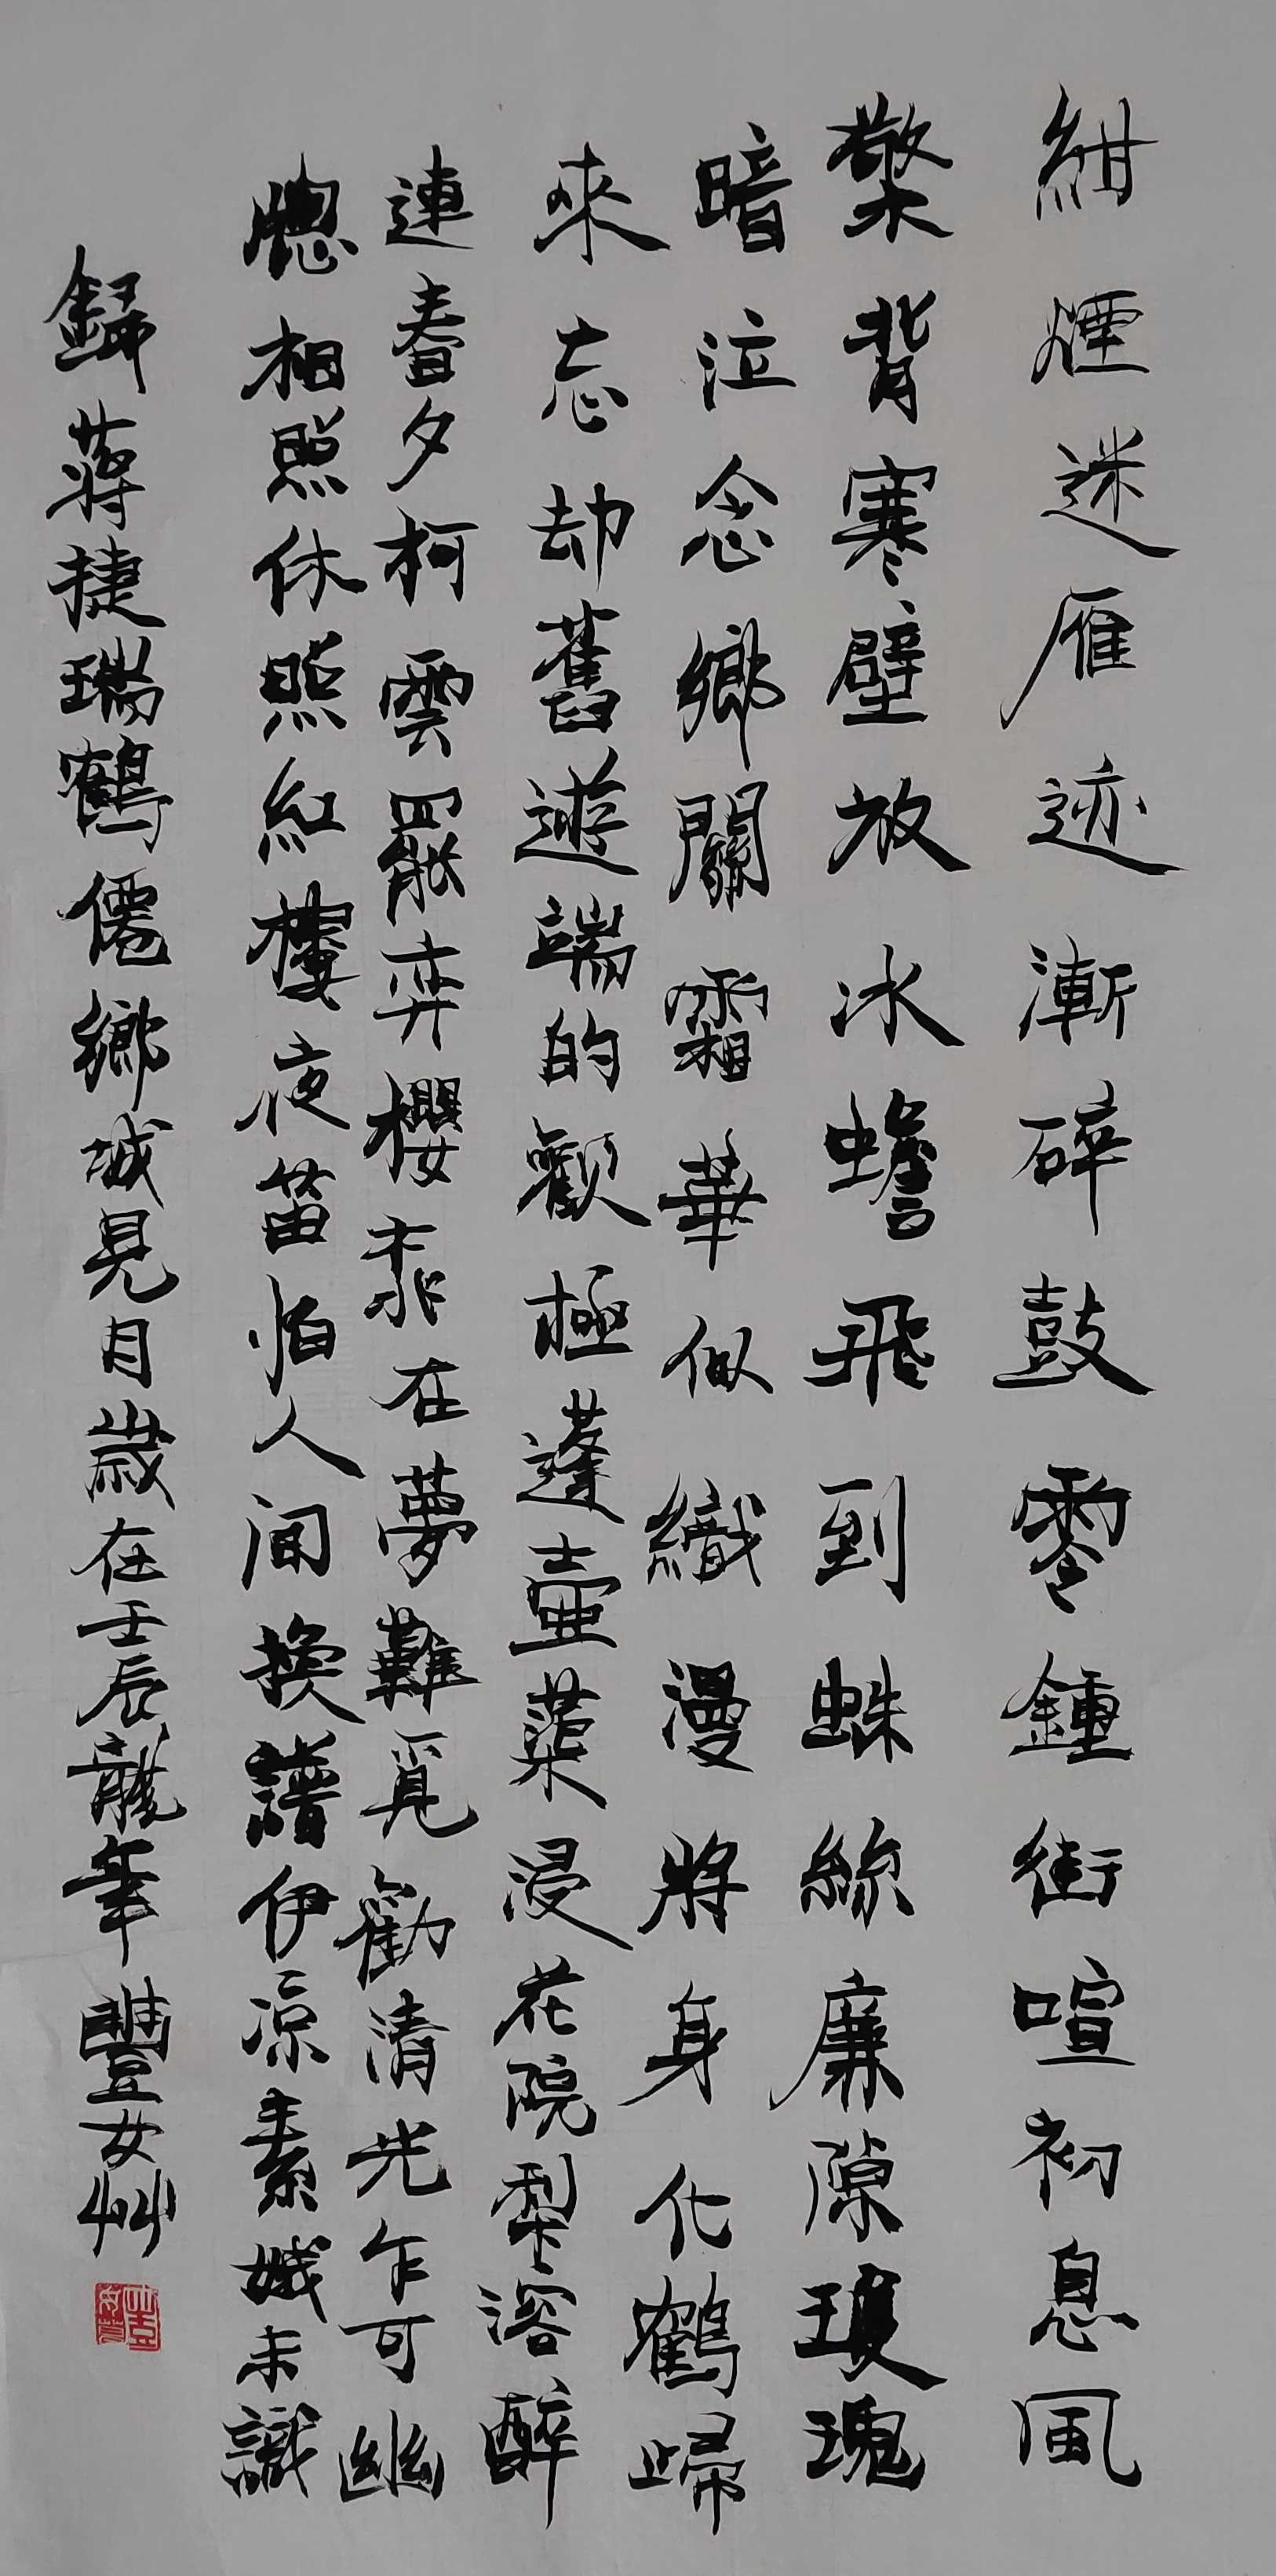 紺煙迷雁迹漸碎鼓零鍾街喧初息風
檠背寒壁放冰蟾飛到蛛絲廉隙瓊瑰
暗泣念鄉關霜華似織漫將身化鶴歸
來忘却舊遊端的歡極蓬壺蕖浸花院梨溶醉
連春夕柯雲罷弈櫻桃在夢難覓勸清光乍可幽
牕相照休照紅樓夜笛怕人间換譜伊凉素娥未識
錄蔣捷瑞鶴僊鄉城見月歲在壬辰龍年豐女艸